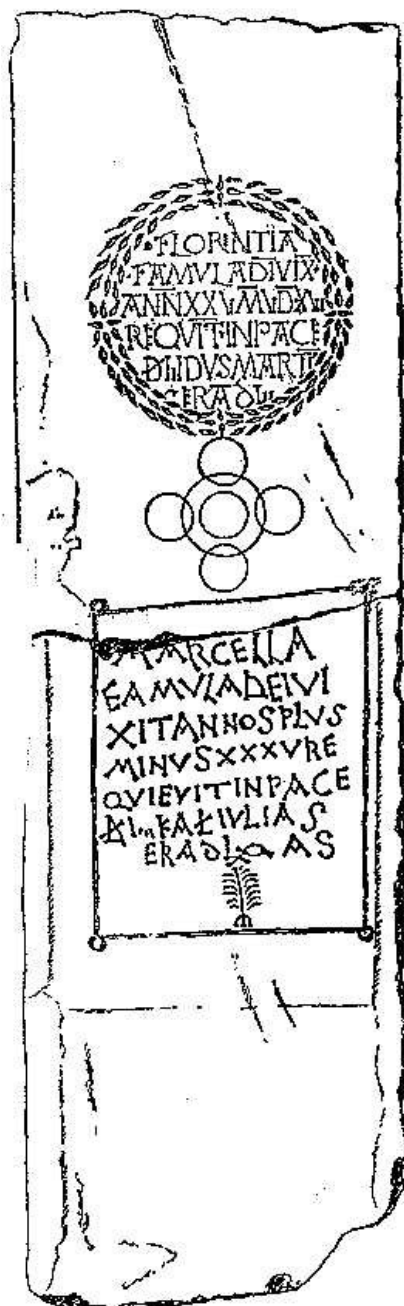 FLORINTIA
FAMVLA DI VIX
ANN XXV M V D XV
REQVIT IN PACE
D III IDVS MARTI
ERA DL
MARCELLA
FAMVLA DEI VI
XIT ANNOS PLVS
MINVS XXXV RE
QVIEVIT IN PACE
D KAL IVLIAS
ERA DL AS